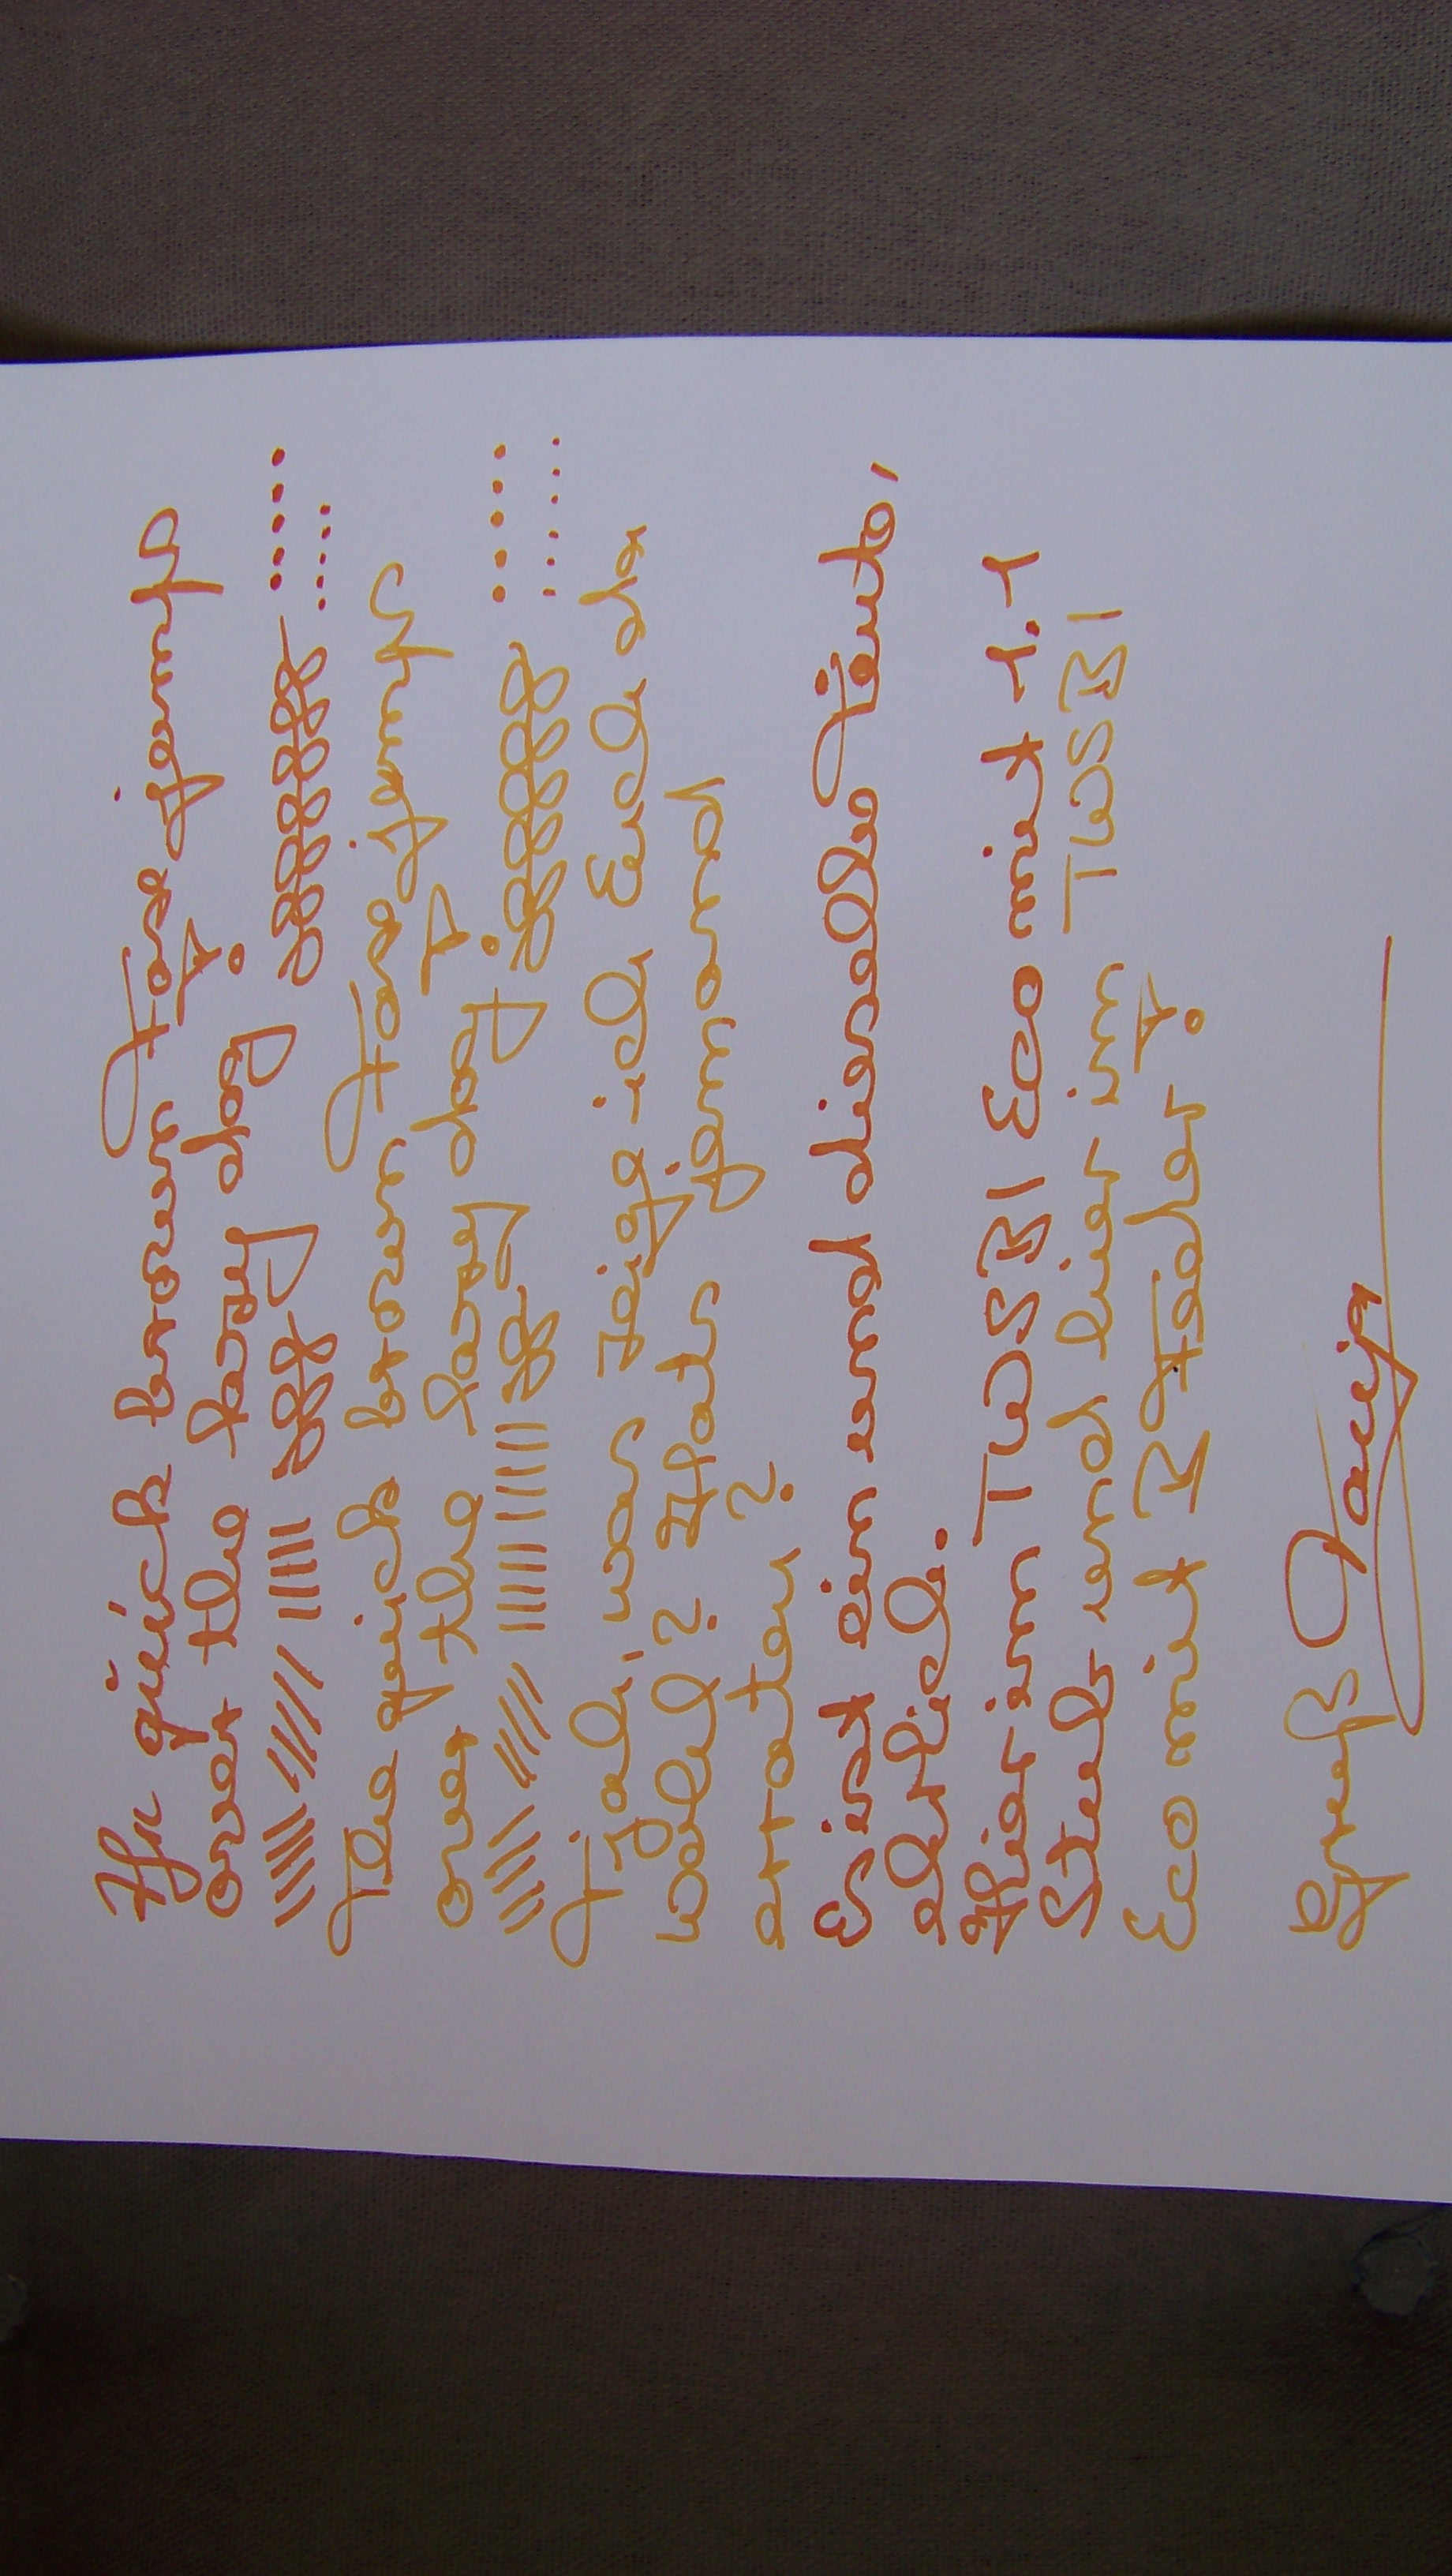 The quick brown Fox jumps
over the lazy dog!
The quick brown Fox jumps
over the lazy dog!
Tjah, was zeige ich Euch da
wohl? Hats jemand
erraten?
Es ist ein und dieselbe Tinte,
ehrlich.
Hier im TWSBI Eco mit 1.1
Stub und hier im TWSBI
Eco mit B Feder!
Gruß